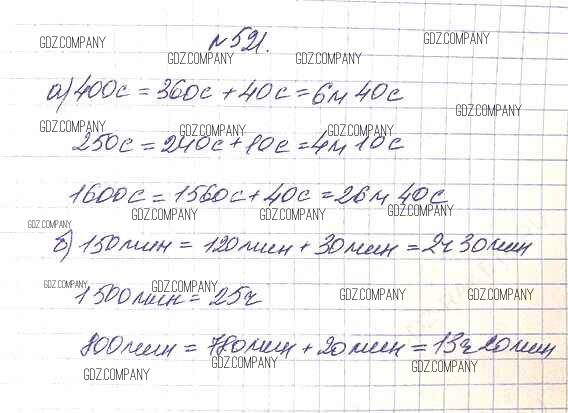 №521.
GDZ.COMPANY GDZ.COMPANY
GDZ.COMPANY GDZ.COMPANY
а) 400с = 360с + 40с = 6м 40с
GDZ.COMPANY
GDZ.COMPANY GDZ.COMPANY GDZ.COMPANY
250с = 240с + 10с = 4м 10с
1600с = 1560с + 40с = 26м 40с
GDZ.COMPANY GDZ.COMPANY GDZ.COMPANY
GDZ.COMPANY
б) 150мин = 120мин + 30мин = 2ч 30мин
GDZ.COMPANY GDZ.COMPANY GDZ.COMPANY GDZ.COMPANY
1500мин = 25ч
800мин = 780мин + 20мин = 13ч 20мин
GDZ.COMPANY GDZ.COMPANY GDZ.COMPANY